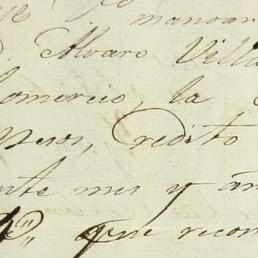 mandar
Alvaro Villa
omercio, la
Pesos, redito
mes y añ
que recon